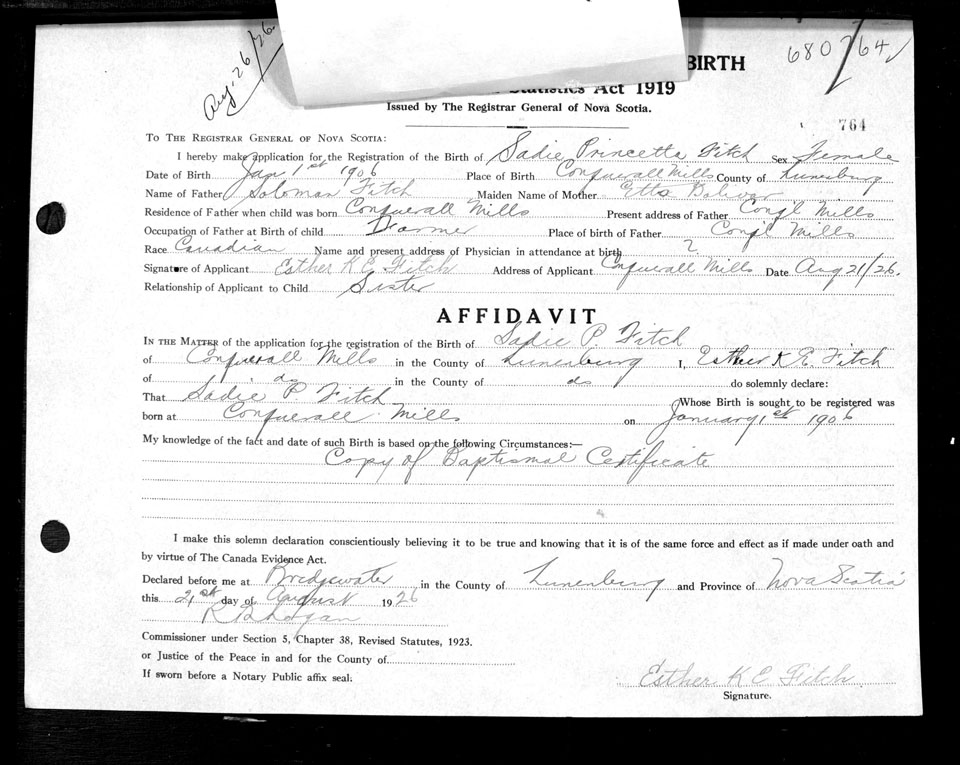 Aug. 26/26.
BIRTH
680/764
Statistics Act 1919
Issued by The Registrar General of Nova Scotia.
764
To The Registrar General of Nova Scotia:
I hereby make application for the Registration of the Birth of Sadie Princetta Fitch Sex Female
Date of Birth Jan 1st 1906 Place of Birth Conquerall Mills County of Lunenburg
Name of Father Soloman Fitch Maiden Name of Mother Etta Bolivar
Residence of Father when child was born Conquerall Mills Present address of Father Conql Mills
Occupation of Father at Birth of child Farmer Place of birth of Father Conql Mills
Race Canadian Name and present address of Physician in attendance at birth ?
Signature of Applicant Esther K E Fitch Address of Applicant Conquerall Mills Date Aug 21/26.
Relationship of Applicant to Child Sister
AFFIDAVIT
In the Matter of the application for the registration of the Birth of Sadie P. Fitch
of Conquerall Mills in the County of Lunenburg I, Esther K. E. Fitch
of do in the County of do do solemnly declare:
That Sadie P. Fitch Whose Birth is sought to be registered was
born at Conquerall Mills on January 1st 1906
My knowledge of the fact and date of such Birth is based on the following Circumstances:—
Copy of Baptismal Certificate
I make this solemn declaration conscientiously believing it to be true and knowing that it is of the same force and effect as if made under oath and
by virtue of The Canada Evidence Act.
Declared before me at Bridgewater in the County of Lunenburg and Province of Nova Scotia
this 21st day of August 1926
Commissioner under Section 5, Chapter 38, Revised Statutes, 1923.
or Justice of the Peace in and for the County of
If sworn before a Notary Public affix seal:
Esther K E Fitch
Signature.